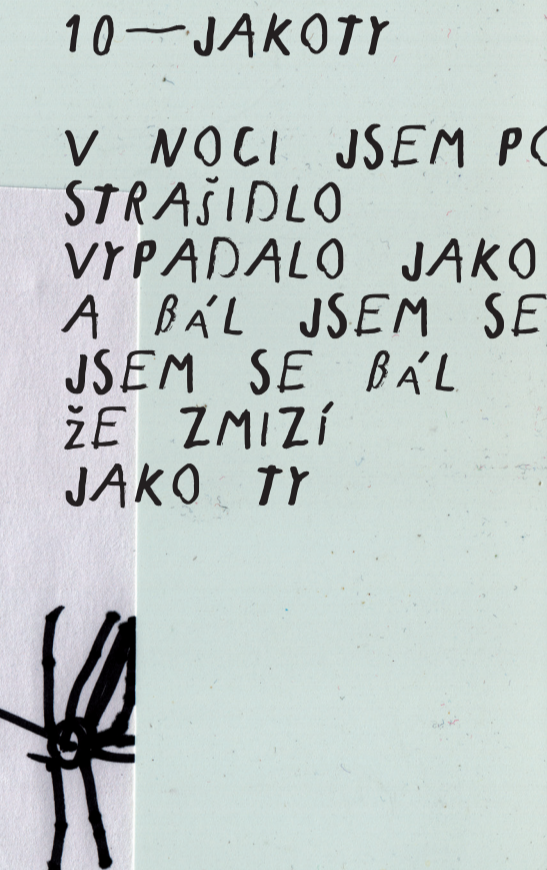 10—JAKOTY
V NOCI JSEM
STRAŠIDLO
VYPADALO JAKO
A BÁL JSEM SE
JSEM SE BÁL
ŽE ZMIZÍ
JAKO TY